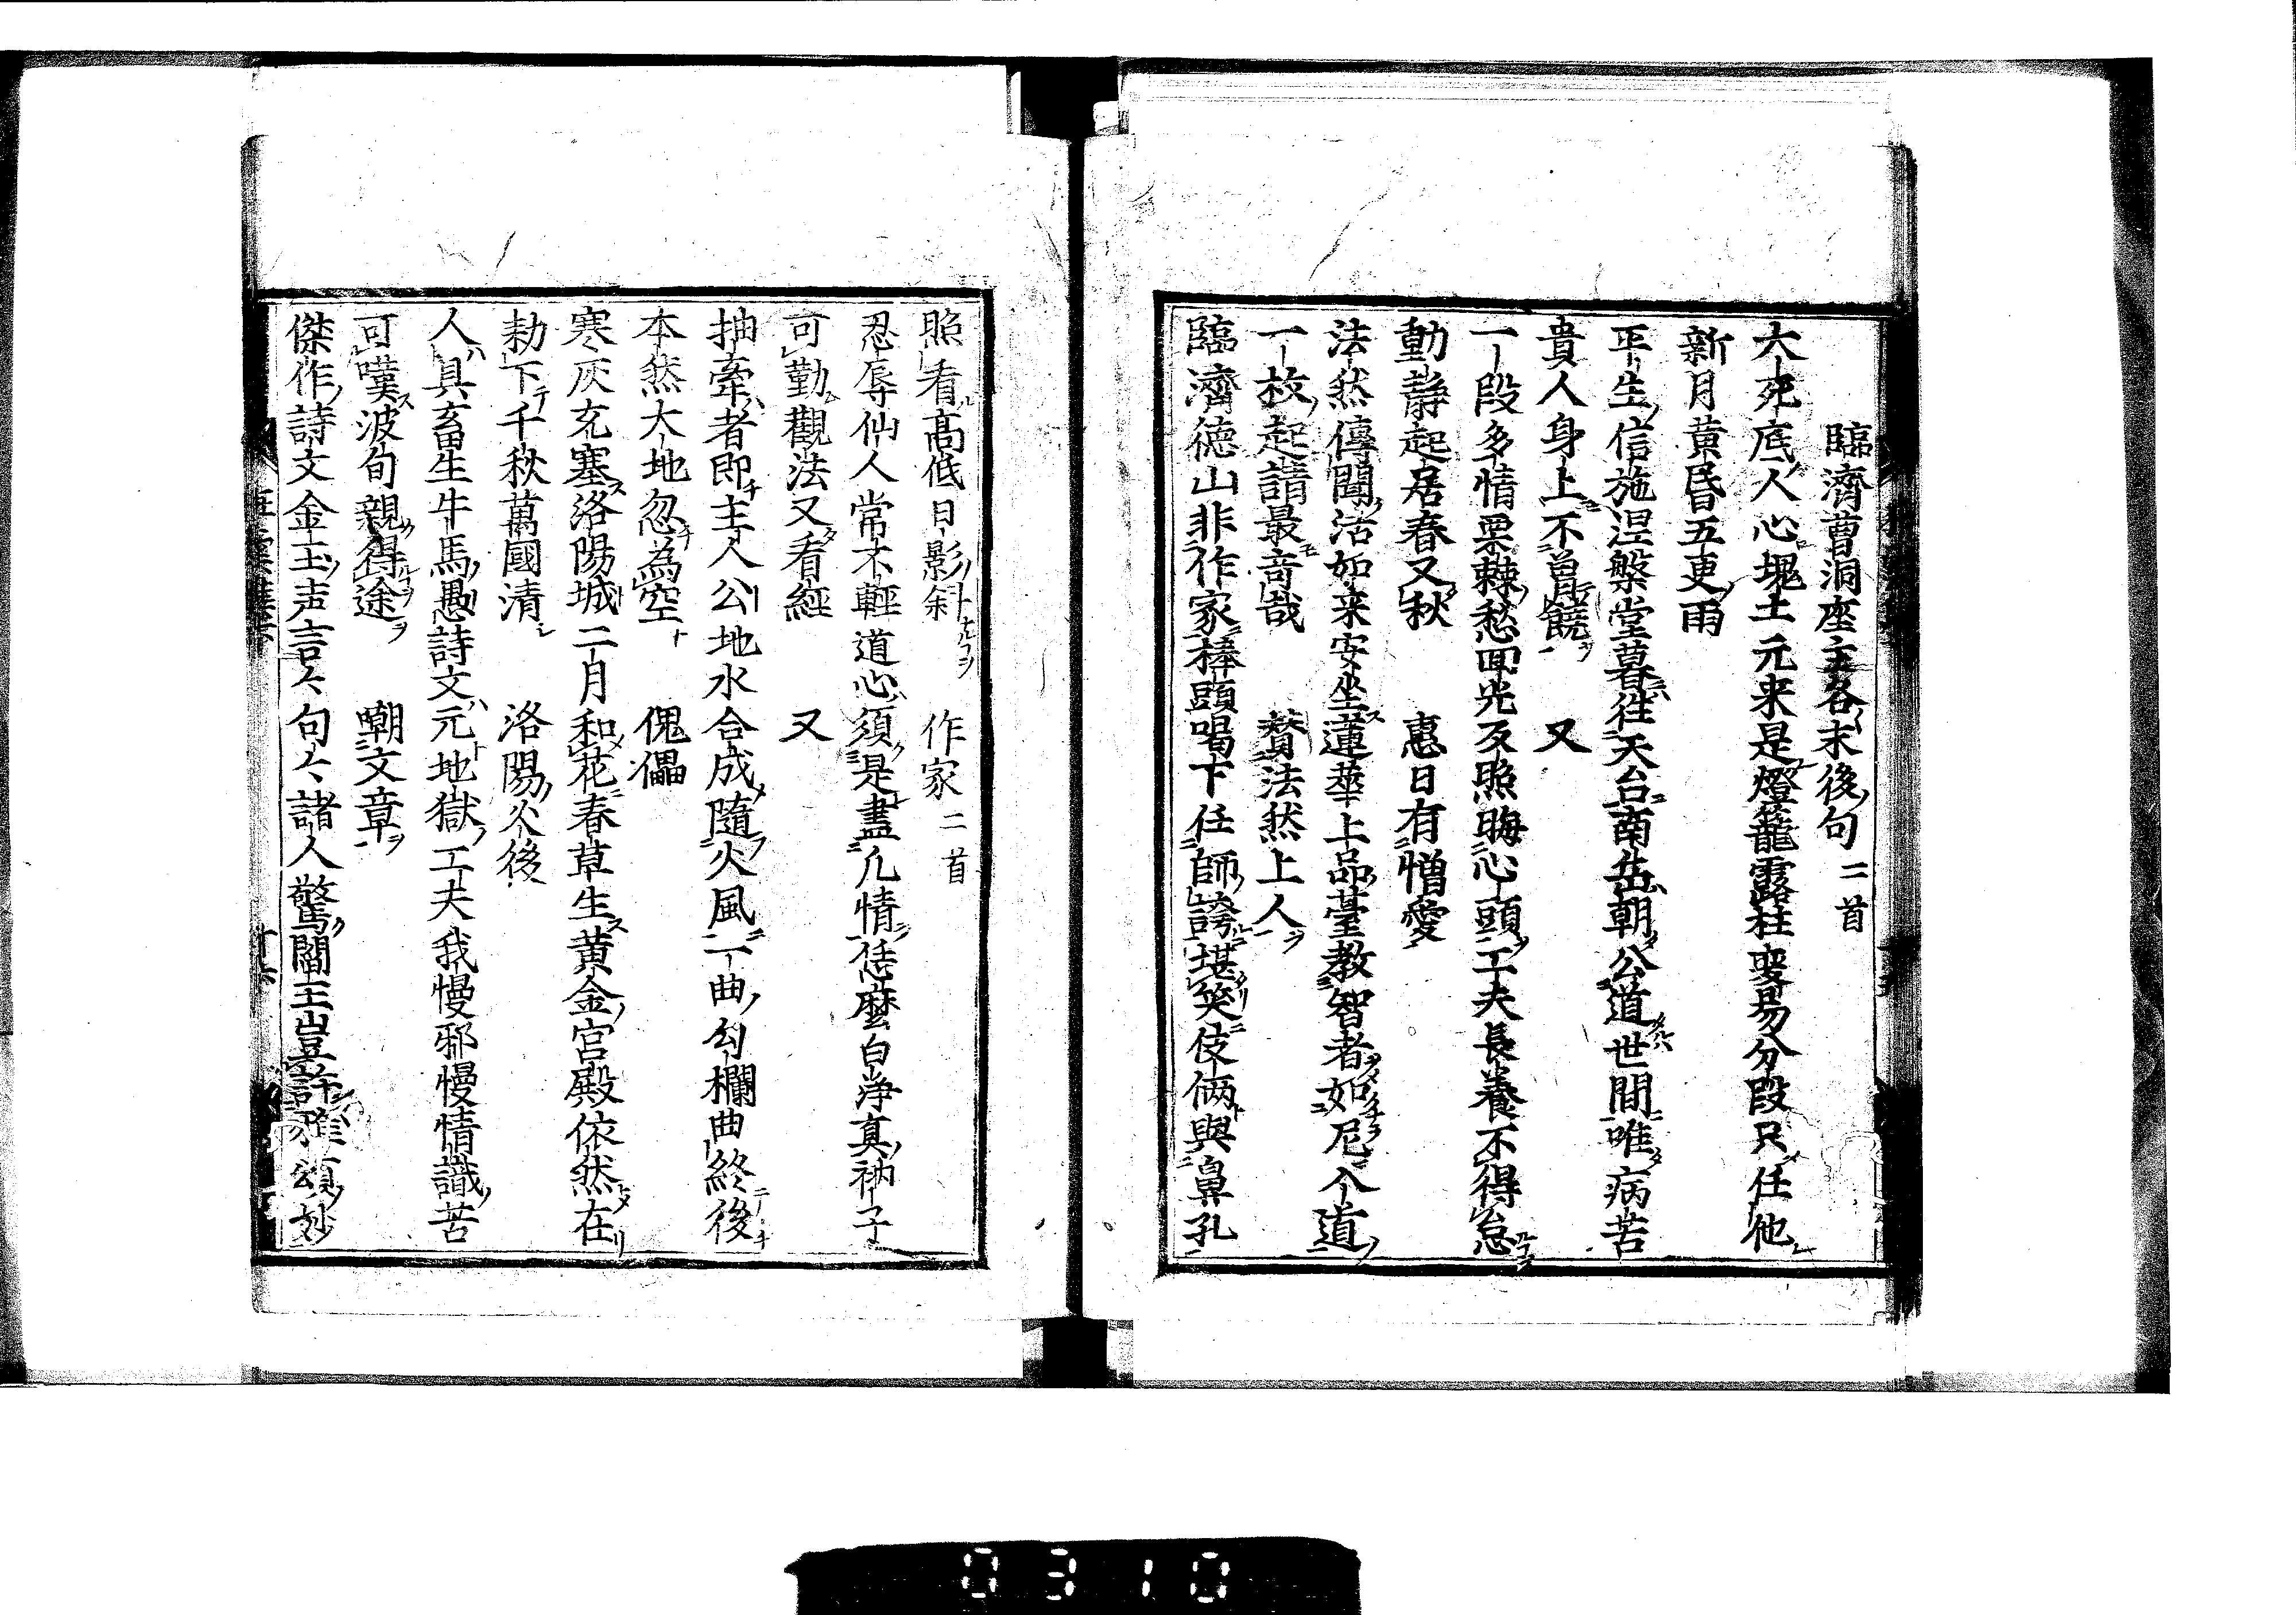 臨濟曹洞座主各々末後句 二首
大死底人心塊土元来是燈籠露柱変易分段只任他
新月黄昏五更雨
平生信施涅槃堂暮往天台南岳朝公道世間唯病苦
貴人身上不曽饒 又
一段多情栗棘愁回光反照晦心頭工夫長養不得怠
動静起居春又秋 悪日有憎愛
法然傳聞活如来安坐蓮華上品臺教智者如尼入道
一枚起請最竒哉 賛法然上人
臨濟德山非作家棒頭喝下任師誇堪笑伎倆與鼻孔
照看髙低日影斜 作家 二首
忍辱仙人常不輕道心須是盡凡情恁麼白浄真衲子
可勤觀法又看經 又
抽牽者即主人公地水合成隨火風一曲勾欄曲終後
本然大地忽為空 傀儡
寒灰充塞洛陽城二月和花春草生黄金宮殿依然在
勅下千秋萬國清 洛陽火後
人具畜生牛馬愚詩文元地獄工夫我慢邪慢情識苦
可嘆波旬親得途 嘲文章
傑作詩文金玉声言々句々諸人驚閻王豈許雅頌妙
0310